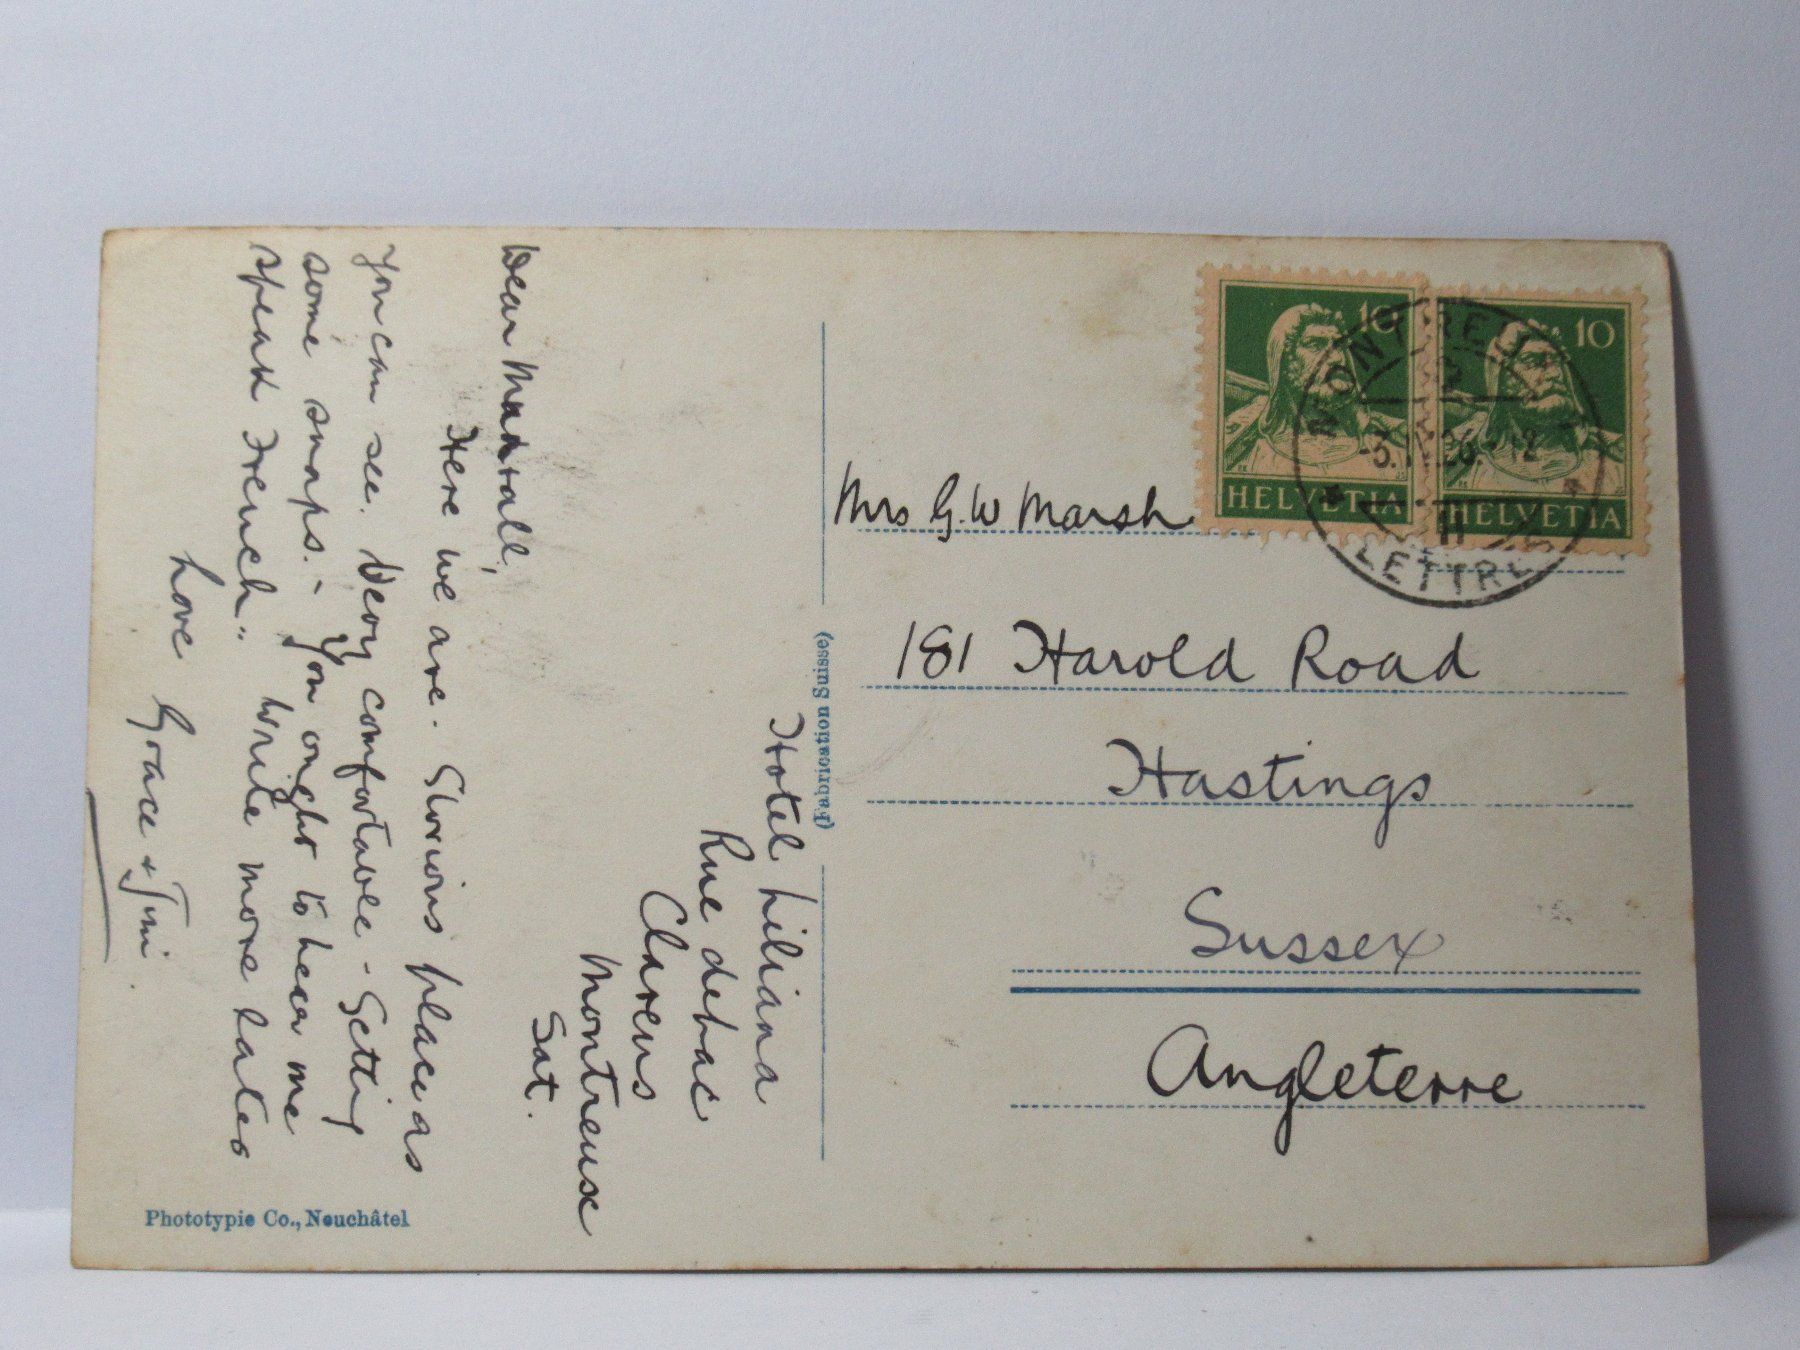 Hotel Liliana
Rue du Lac
Clarens
Montreux
Sat.
Dear
Here we are. Glorious place as
you can see. Very comfortable - Getting
some snaps. - You ought to hear me
speak French.. Write more later
Love Grace + Jim.
Phototypie Co., Neuchâtel
(Fabrication Suisse)
10
HELVETIA
10
HELVETIA
MONTREUX
LETTRES
Mrs G. W Marsh
181 Harold Road
Hastings
Sussex
Angleterre